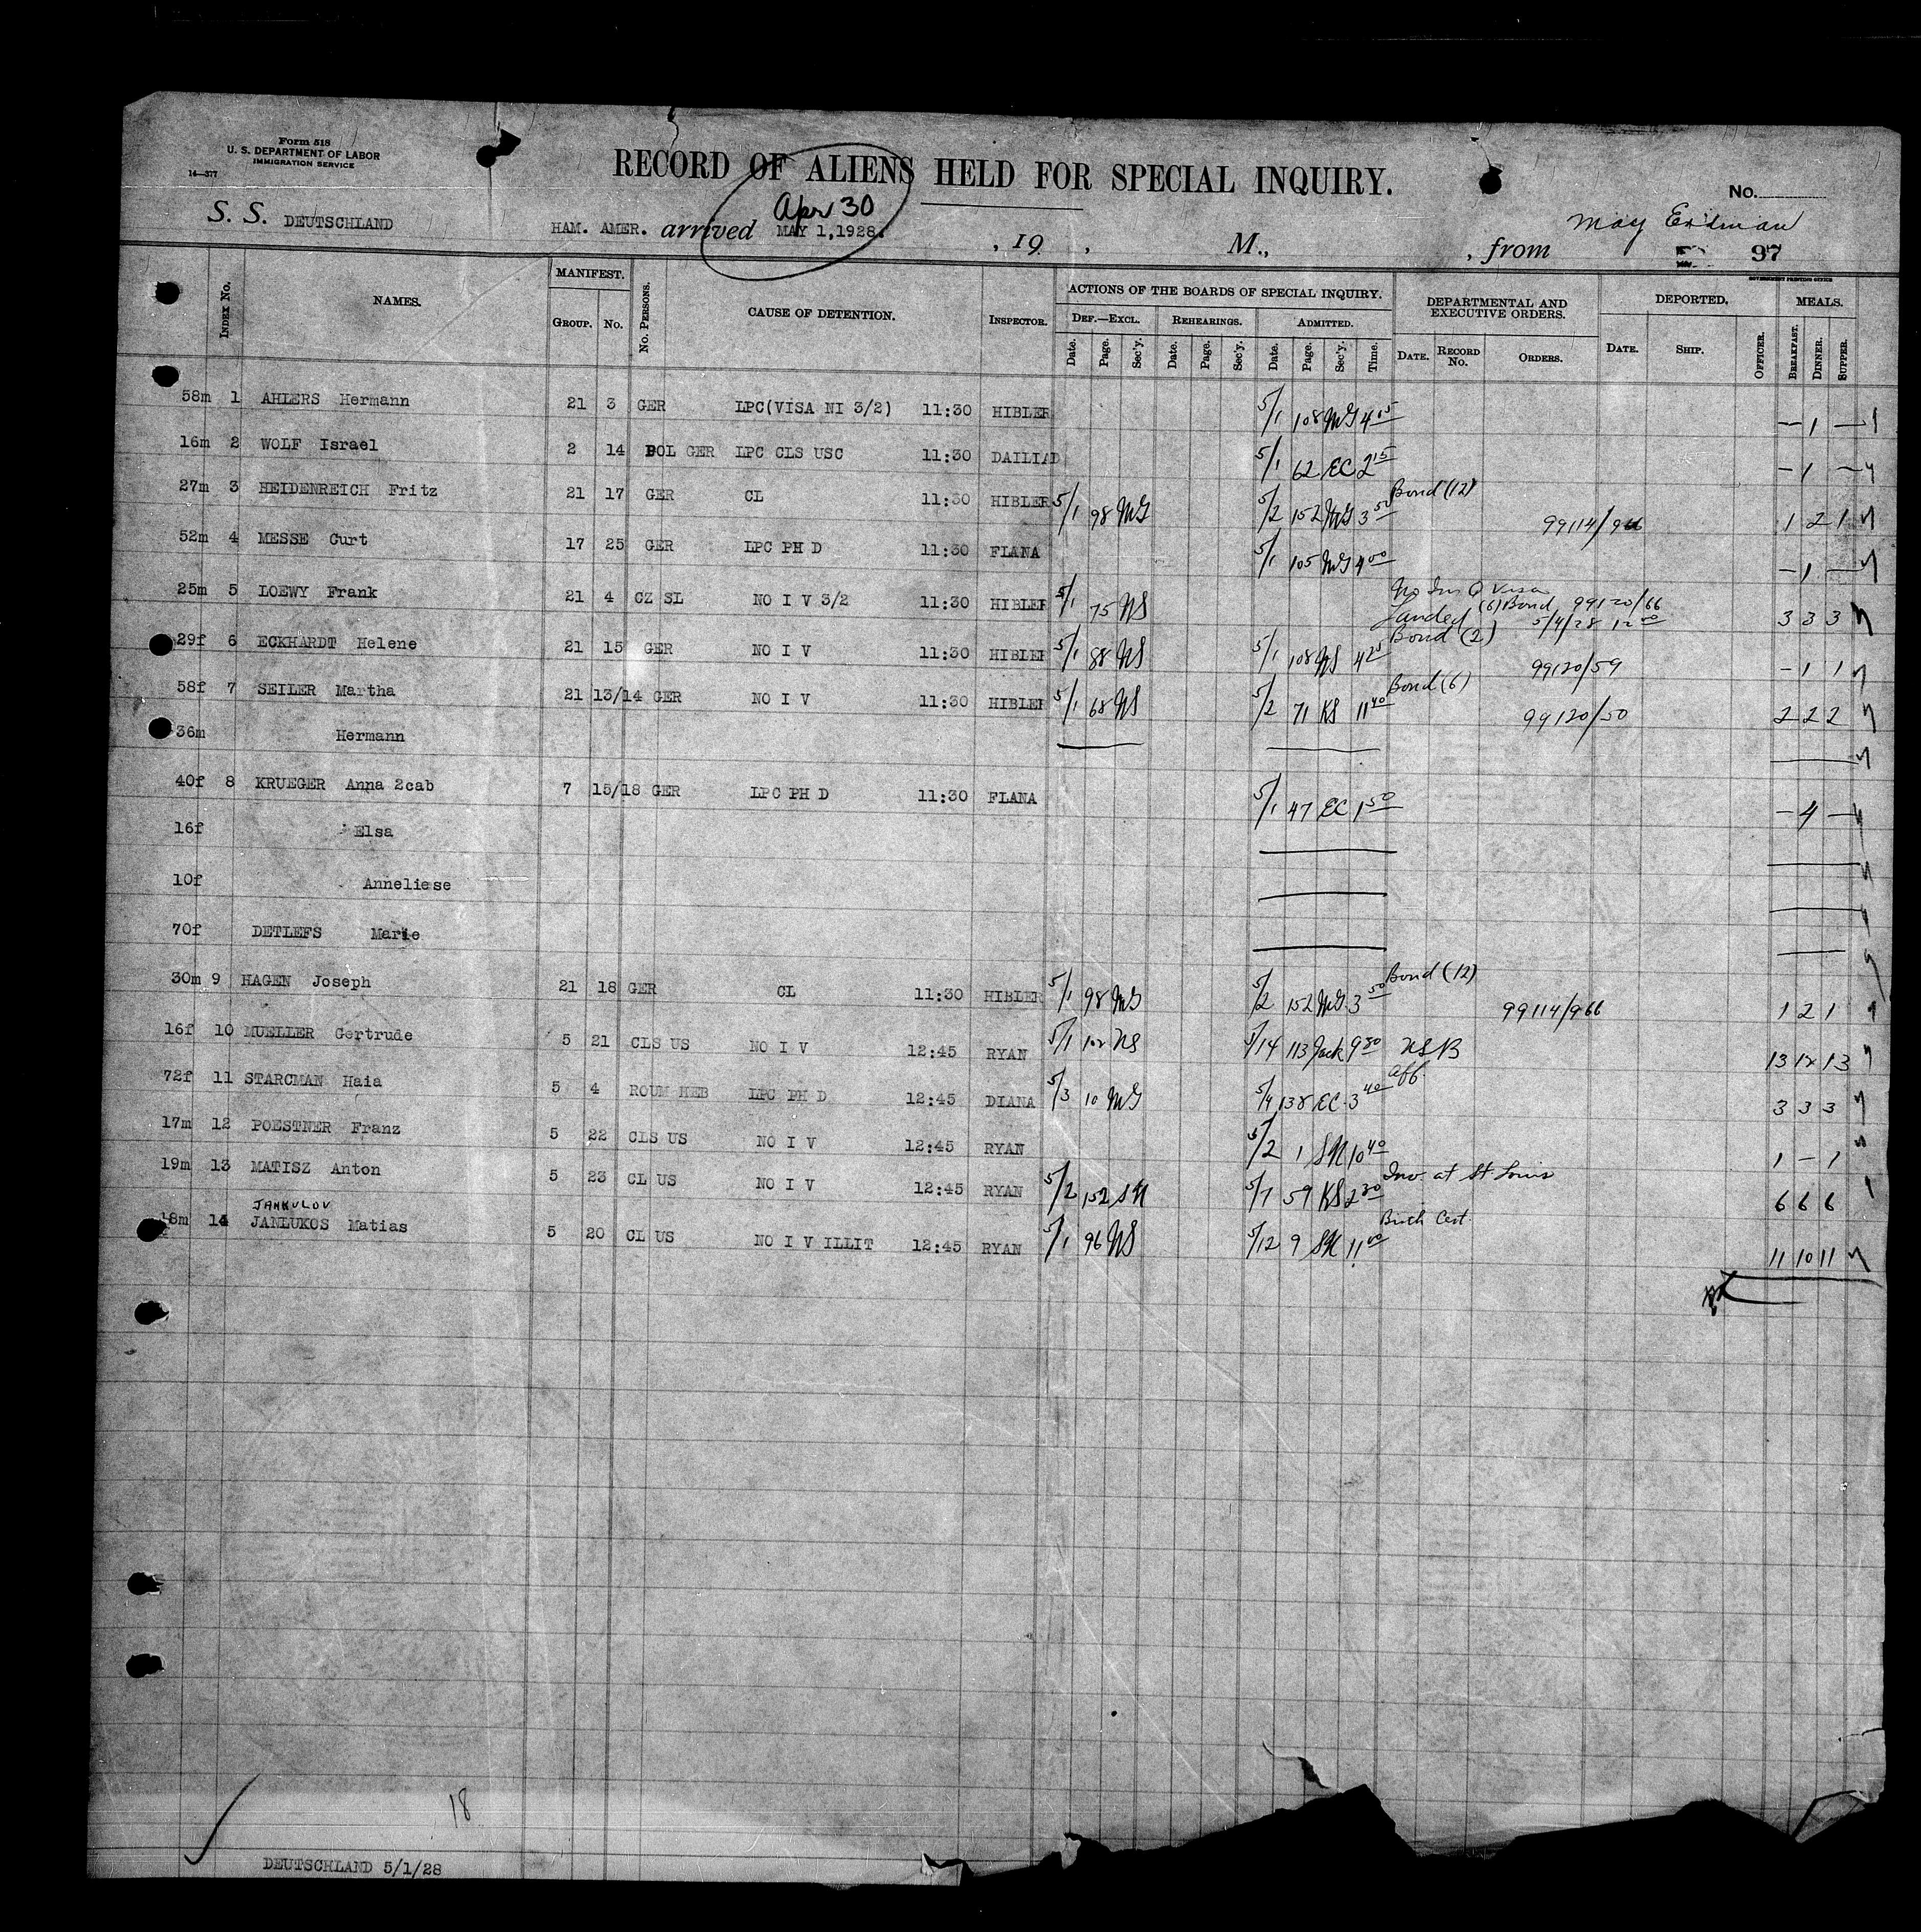 Form 518
U. S. DEPARTMENT OF LABOR
IMMIGRATION SERVICE
14—377
RECORD OF ALIENS HELD FOR SPECIAL INQUIRY.
No.
S. S. DEUTSCHLAND HAM. AMER. arrived MAY 1,1928. , 19 , M., , from 97
Apr 30
GOVERNMENT PRINTING OFFICE
INDEX No. NAMES. MANIFEST. No. PERSONS. CAUSE OF DETENTION. INSPECTOR. ACTIONS OF THE BOARDS OF SPECIAL INQUIRY. DEPARTMENTAL AND EXECUTIVE ORDERS. DEPORTED. MEALS.
GROUP. No. DEF.—EXCL. REHEARINGS. ADMITTED.
Date. Page. Sec'y. Date. Page. Sec'y. Date. Page. Sec'y. Time. DATE. RECORD No. ORDERS. DATE. SHIP. OFFICER. BREAKFAST. DINNER. SUPPER.
58m 1 AHLERS Hermann 21 3 GER LPC(VISA NI 3/2) 11:30 HIBLER 5/1 108 MG 4 15 — 1 —
16m 2 WOLF Israel 2 14 POL GER LPC CLS USC 11:30 DAILIAD 5/1 62 EC 2 15 — 1 —
27m 3 HEIDENREICH Fritz 21 17 GER CL 11:30 HIBLER 5/1 98 MG 5/2 152 MG 3 50 Bond (12) 99114/966 1 2 1
52m 4 MESSE Curt 17 25 GER LPC PH D 11:30 FLANA 5/1 105 MG 4 00 — 1 —
25m 5 LOEWY Frank 21 4 CZ SL NO I V 3/2 11:30 HIBLER 5/1 75 NS No Im Q Visa
Landed (6) Bond 99120/66 5/4/28 12 00 3 3 3
29f 6 ECKHARDT Helene 21 15 GER NO I V 11:30 HIBLER 5/1 88 NS 5/1 108 NS 4 20 Bond (2) 99120/59 — 1 1
58f 7 SEILER Martha 21 13/14 GER NO I V 11:30 HIBLER 5/1 68 NS 5/2 71 KS 11 40 Bond (6) 99120/50 2 2 2
36m Hermann
40f 8 KRUEGER Anna 2cab 7 15/18 GER LPC PH D 11:30 FLANA 5/1 47 EC 1 50 — 4 —
16f Elsa
10f Anneliese
70f DETLEFS Marie
30m 9 HAGEN Joseph 21 18 GER CL 11:30 HIBLER 5/1 98 MG 5/2 152 MG 3 50 Bond (12) 99114/966 1 2 1
16f 10 MUELLER Gertrude 5 21 CLS US NO I V 12:45 RYAN 5/1 102 NS 5/14 113 Jack 9 30 13 12 13
72f 11 STARCMAN Haia 5 4 ROUM HEB LPC PH D 12:45 DIANA 5/3 10 MG 5/4 138 EC 3 40 aff. 3 3 3
17m 12 POESTNER Franz 5 22 CLS US NO I V 12:45 RYAN 5/2 1 SN 10 40 1 — 1
19m 13 MATISZ Anton 5 23 CL US NO I V 12:45 RYAN 5/2 152 SN 5/7 59 KS 2 30 Inv at St Louis 6 6 6
JANKULOV
18m 14 JANLUKOS Matias 5 20 CL US NO I V ILLIT 12:45 RYAN 5/1 96 NS 5/12 9 SN 11 00 Birth Cert. 11 10 11
18
DEUTSCHLAND 5/1/28